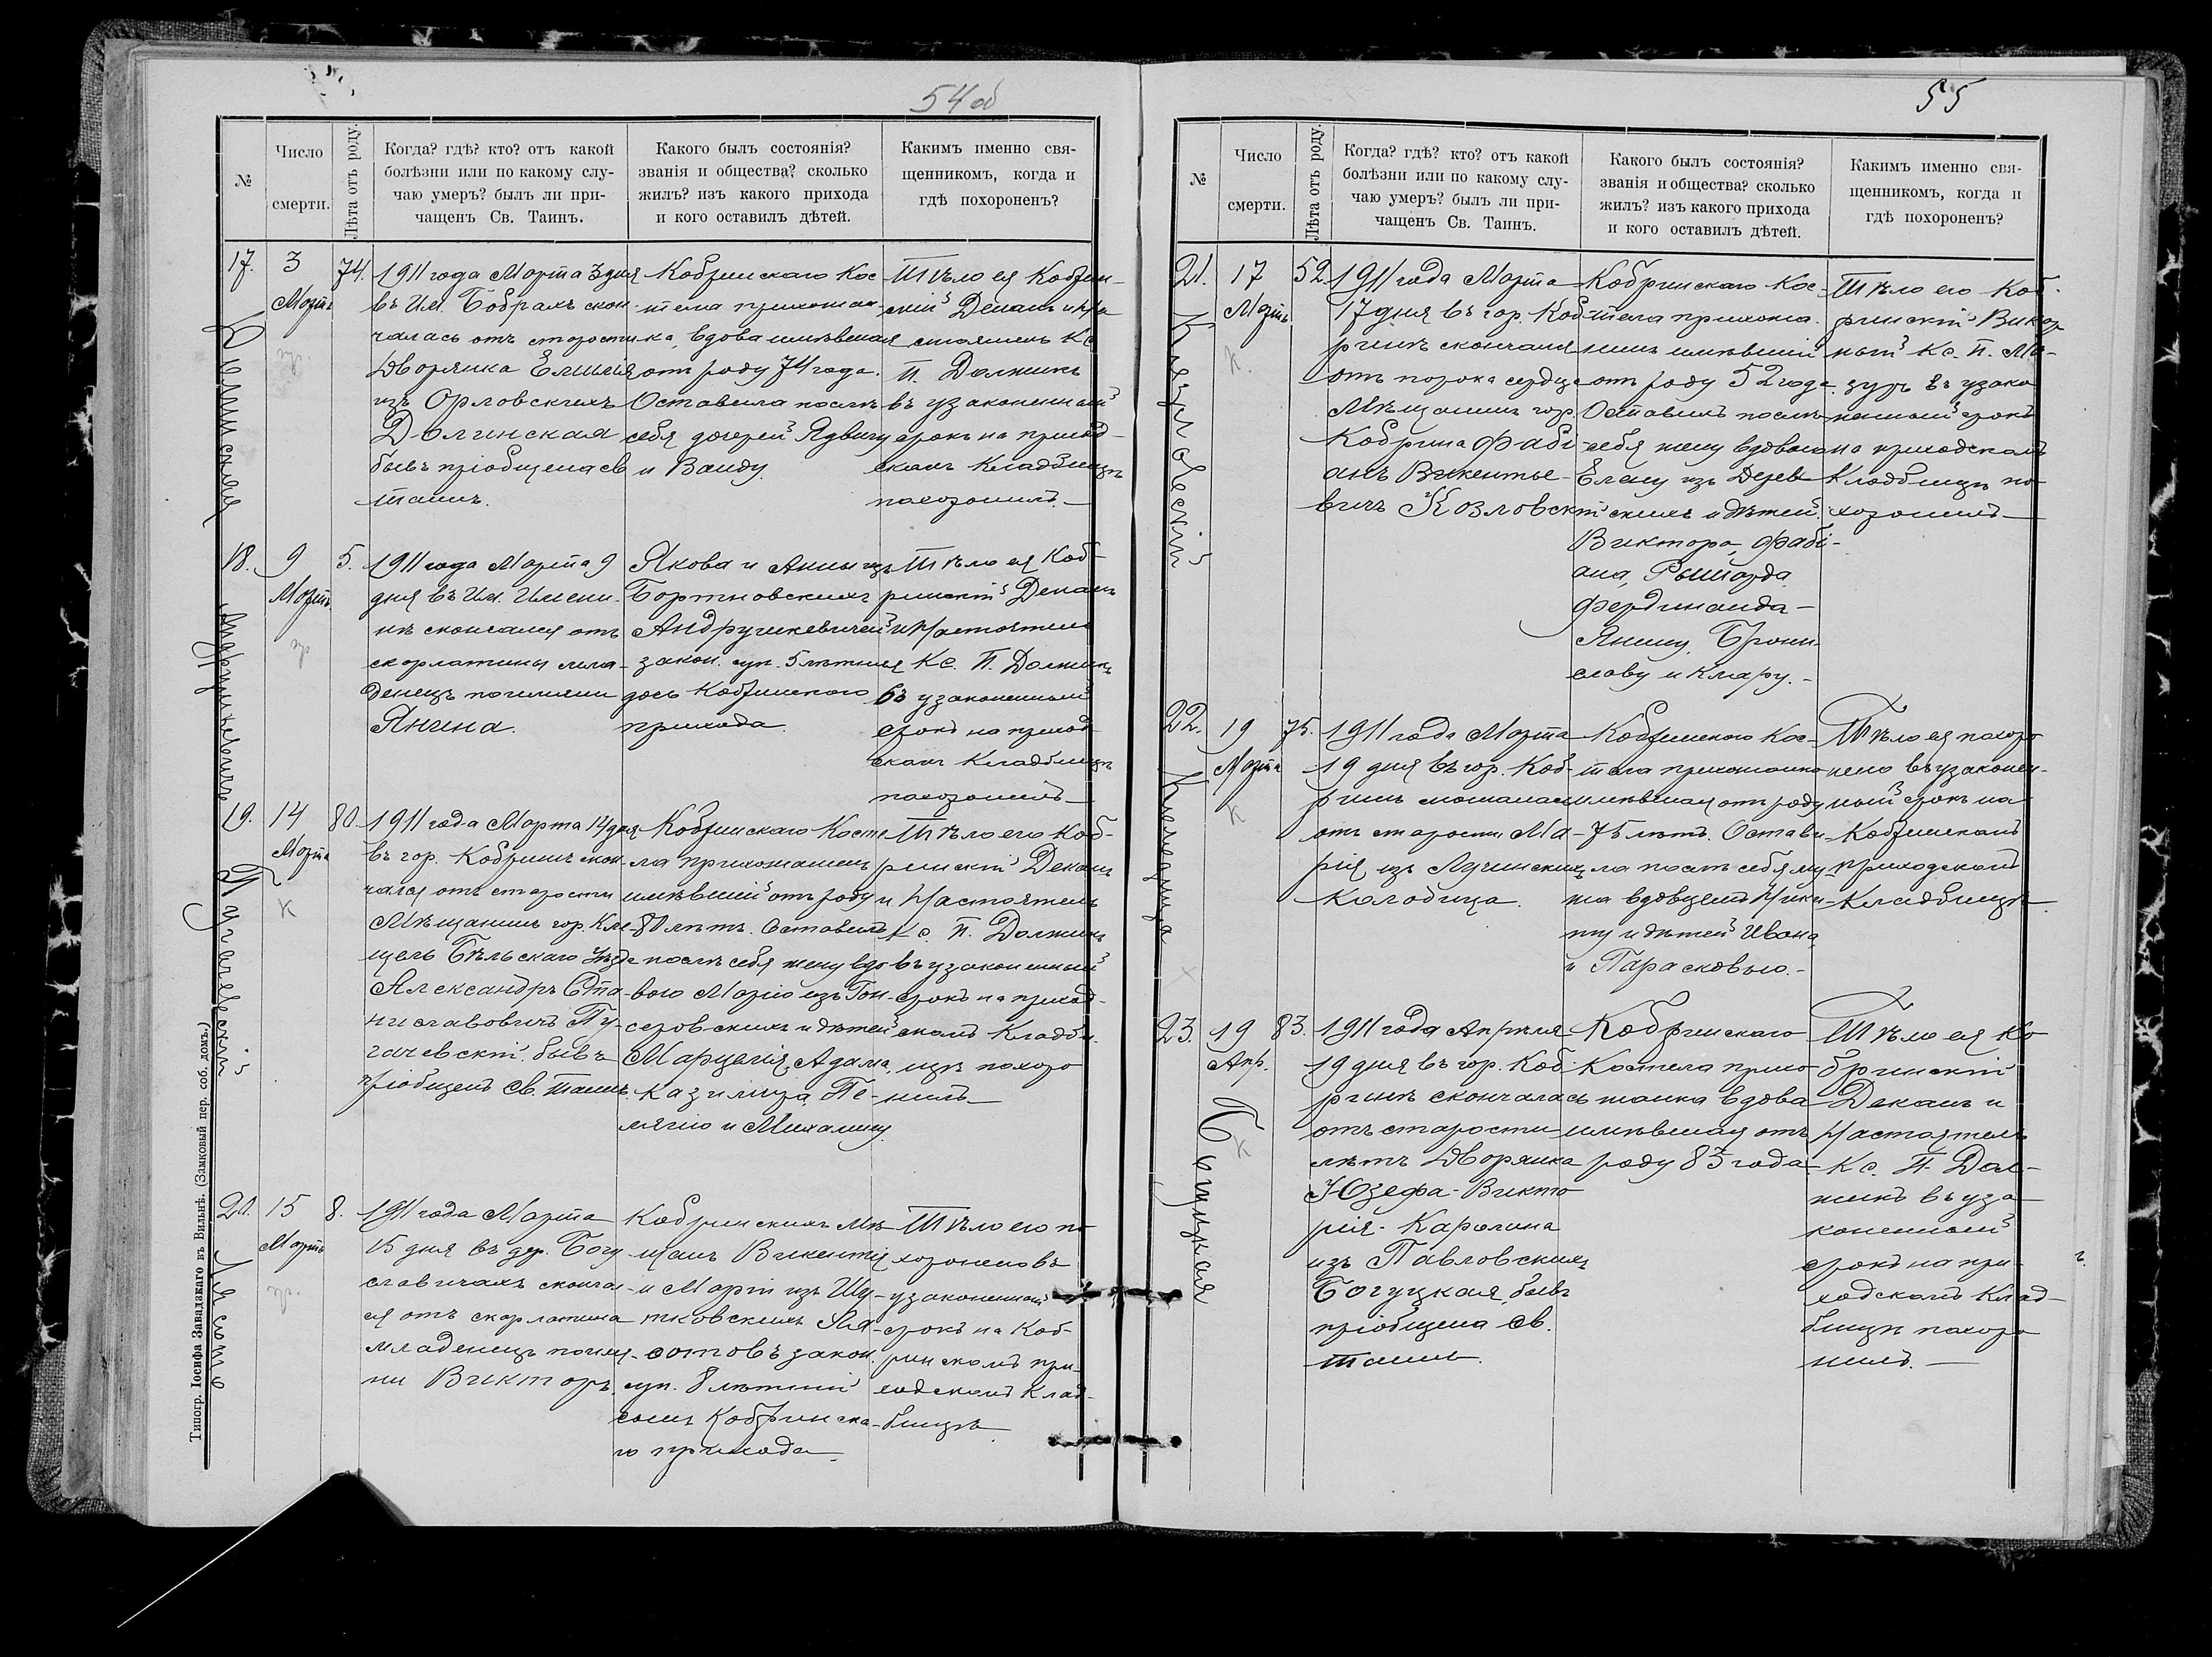 54 об
№
Число
смерти.
Лѣта отъ роду.
Когда? гдѣ? кто? отъ какой
болѣзни или по какому слу-
чаю умеръ? былъ ли при-
чащенъ Св. Таинъ.
Какого былъ состоянія?
званія и общества? сколько
жилъ? изъ какого прихода
и кого оставилъ дѣтей.
Какимъ именно свя-
щенникомъ, когда и
гдѣ похороненъ?
17.
3
Марта
74.
1911 года Марта 3 дня
въ Им. Бобрахъ скон-
чалась отъ старости
Дворянка Емилія
изъ Орловскихъ
Долинская
бывъ пріобщена св
таинъ.
Кобринскаго Кос
тела прихожан-
ка, вдова имѣвшая
отъ роду 74 года.
Оставила послѣ
себя дочерей Ядвигу
и Ванду.
Тѣло ея Кобрин-
скій Деканъ и На
стоятель Кс.
П. Должикъ
въ узаконенный
срокъ на приход-
скомъ Кладбищѣ
похоронилъ.
18.
Андрушкевичъ
9
Марта
5.
1911 года Марта 9
дня въ Им.
скончался отъ
скарлатины мла-
денецъ по имени
Янина.
Якова и Анны изъ
Бортновскихъ
Андрушкевичей
закон. суп. 5 лѣтняя
дочь Кобринскаго
прихода.
Тѣло ея Коб-
ринскій Деканъ
и Настоятель
Кс. П. Должикъ
въ узаконенный
срокъ на приход
скомъ Кладбищѣ
похоронилъ
19.
Пугачевскій
14
Марта
К
80.
1911 года Марта 14 дня
въ гор. Кобринѣ скон-
чался отъ старости
Мѣщанинъ гор. Кле-
щель Бѣльскаго Уѣзда
Александръ Ста-
ниславовичъ Пу-
гачевскій бывъ
пріобщенъ Св. таинъ
Кобринскаго Косте
ла прихожанинъ
имѣвшій отъ роду
80 лѣтъ. Оставилъ
послѣ себя жену вдо
вою Марію изъ Гон-
серовскихъ и дѣтей
Марцелія, Адама,
Казиміра, Пе-
лягію и Михалину.
Тѣло его Коб-
ринскій Деканъ
и Настоятель
Кс. П. Должикъ
въ узаконенный
срокъ на приход-
скомъ Кладби-
щѣ похоро
нилъ
20.
15
Марта
8.
1911 года Марта
15 дня въ дер. Богу
славичахъ сконча-
ся отъ скарлатина
младенецъ по име-
ни Викторъ.
Кобринскихъ мѣ
щанъ Викентія
и Маріи изъ Шу-
тковскихъ Ля-
сотовъ закон.
суп. 8 лѣтній
сынъ Кобринска-
го прихода.
Тѣло его по
хоронено въ
узаконенный
срокъ на Коб-
ринскомъ при-
ходскомъ Клад-
бищѣ.
Типогр. Іосифа Завадзкаго въ Вильнѣ. (Замковый пер. соб. домъ.)
55
№
Число
смерти.
Лѣта отъ роду.
Когда? гдѣ? кто? отъ какой
болѣзни или по какому слу-
чаю умеръ? былъ ли при-
чащенъ Св. Таинъ.
Какого былъ состоянія?
званія и общества? сколько
жилъ? изъ какого прихода
и кого оставилъ дѣтей.
Какимъ именно свя-
щенникомъ, когда и
гдѣ похороненъ?
21.
Козловскій
17
Марта
К.
52.
1911 года Марта
17 дня въ гор. Коб-
ринѣ скончался
отъ порока сердца
Мѣщанинъ гор.
Кобрина Фабі-
анъ Викентье-
вичъ Козловскій
Кобринскаго Кос-
тела прихожа-
нинъ имѣвшій
отъ роду 52 года
Оставилъ послѣ
себя жену вдовою
Елену изъ Дерев
скихъ и дѣтей:
Виктора, Фабі-
ана, Рышарда
Фердинанда-
Янину, Брони-
славу и Клару.-
Тѣло его Коб-
ринскій Викар
ный Кс. П. Ма-
зуръ въ узако
ненный срокъ
на приходскомъ
Кладбищѣ по-
хоронилъ
22.
Колодница
19
Марта
К
75.
1911 года Марта
19 дня въ гор. Коб-
ринѣ скончалась
отъ старости Ма-
рія изъ Лучинскихъ
Колодица.
Кобринскаго Кос-
тела прихожанка
имѣвшая отъ роду
75 лѣтъ. Остави-
ла послѣ себя му-
жа вдовцемъ Ники-
ту и дѣтей Ивана
и Парасковью.-
Тѣло ея похоро
нено въ узаконен-
ный срокъ на
Кобринскомъ
приходскомъ
Кладбищѣ.
23.
Богуцкая
19
Апр.
К
83.
1911 года Апрѣля
19 дня въ гор. Коб-
ринѣ скончалась
отъ старости
лѣтъ Дворянка
Юзефа-Викто
рія-Каролина
изъ Павловскихъ
Богуцкая, бывъ
пріобщена Св.
таинъ.
Кобринскаго
Костела прихо
жанка вдова
имѣвшая отъ
роду 83 года
Тѣло ея Ко
бринскій
Деканъ и
Настоятель
Кс. П. Дол-
жикъ въ уза
коненный
срокъ на при-
ходскомъ Клад-
бищѣ похоро
нилъ.